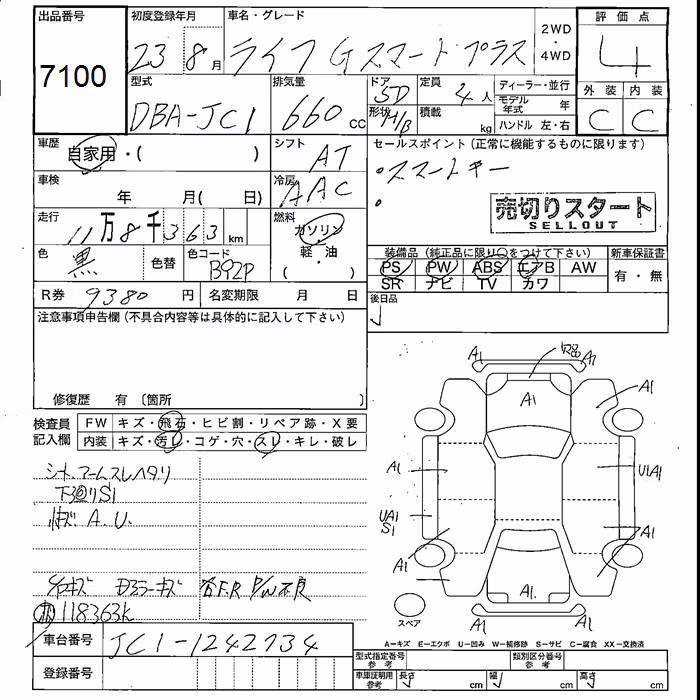 出品番号 初度登録年月 車名・グレード 2WD・4WD 評価点
7100 23 8月 ライフ Gスマートプラス 4
型式 排気量 ドア 5D 定員 4人 ディーラー・並行 外装 内装
DBA-JC1 660cc 形状 H/B 積載 kg モデル年式 年 C C
ハンドル 左・右
車歴 自家用・( ) シフト AT セールスポイント(正常に機能するものに限ります)
車検 年 月( 日) 冷房 AAC ・スマートキー
・
売切りスタート
SELLOUT
走行 11万8千363km 燃料 ガソリン
軽・油
・( )
色 黒 色替 色コード B92P
装備品(純正品に限り○をつけて下さい) 新車保証書
PS PW ABS エアB AW 有・無
SR ナビ TV カワ
R券 9380円 名変期限 月 日 後日品
注意事項申告欄(不具合内容等は具体的に記入して下さい)
修復歴 有 〔箇所 〕
検査員記入欄 FW キズ・飛石・ヒビ割・リペア跡・X要
内装 キズ・汚レ・コゲ・穴・スレ・キレ・破レ
シート、アームスレヘタリ
下廻りS1
A.U.
118363K
A1 欠品 A1
A1 A1
A1 UA1
UA1
S1 A1
A1 A1
A1 A1
スペア
A-キズ E-エクボ U-凹み W-補修跡 S-サビ C-腐食 XX-交換済
車台番号 JC1-1242734
登録番号
型式指定番号 参考 類別区分番号 参考
車庫証明用 参考 長さ cm 幅 cm 高さ cm